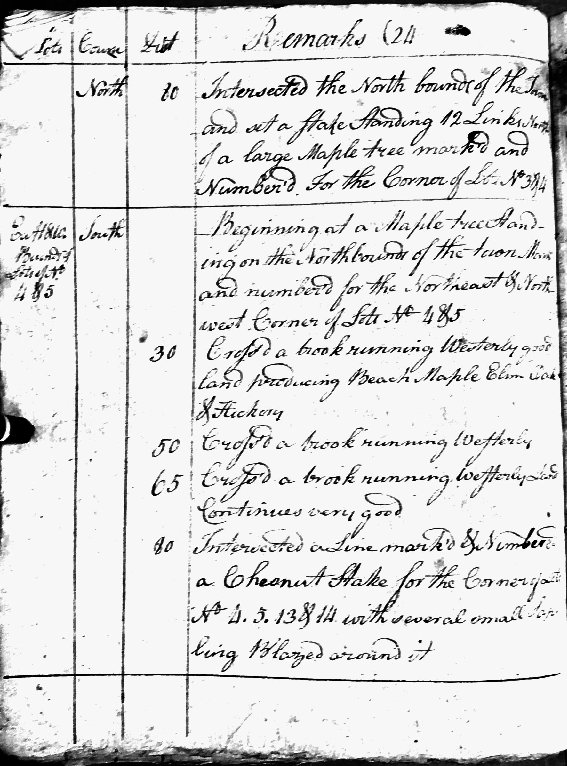 Lots Course Dist Remarks (24
North 80 Intersected the North bounds of the Town
and set a stake Standing 12 Links North
of a large Maple tree mark'd and
Number'd. For the Corner of Lots No 3 & 4
East & W. South Beginning at a Maple tree stand-
Bounds of ing on the North bounds of the town Mark
Lots of No and number'd for the Northeast & North
4 & 5 west Corner of Lots No 4 & 5
30 Cross'd a brook running Westerly good
land producing Beach Maple Elim Oak
& Hickory
50 Cross'd a brook running Westerly
65 Cross'd a brook running Westerly Land
Continues very good
80 Intersected a Line mark'd & Number'd
a Chesnut Stake for the Corner of Lots
No 4. 5. 13 & 14 with several small Sap-
ling Blazed around it